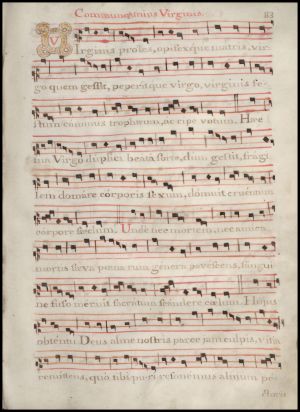 Commune unius Virginis. 83
Virginis proles, opifexque matris, vir-
go quem gessit, peperitque virgo, virginis fe-
stum canimus trophæum, accipe votum. Hæc
tua Virgo duplici beata sorte, dum gestit, fragi-
lem domáre córporis sexum, domuit cruéntum
córpore sæclum. Unde nec mortem, nec amíca
mortis sæva pœnarum génera pavéscens, sángui-
ne fuso meruit sacrátum scándere cœlum. Hujus
obténtu Deus alme nostris parce jam culpis, vitia
remíttens, quo tibi puri resonémus almum pé-
ctoris